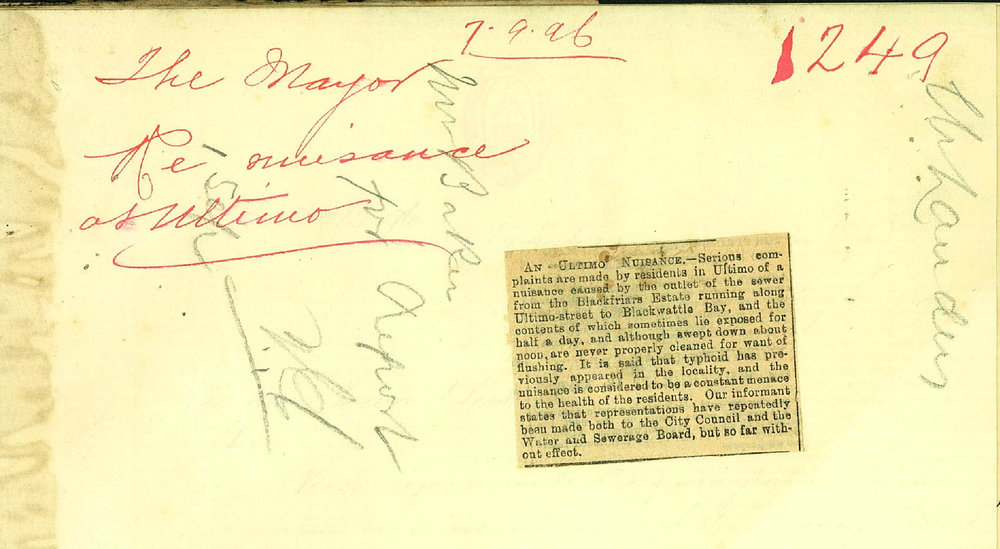 7.9.96
1249
The Mayor
Re nuisance
at Ultimo
Mr Baker
for
Report
AN ULTIMO NUISANCE.—Serious com-
plaints are made by residents in Ultimo of a
nuisance caused by the outlet of the sewer
from the Blackfriars Estate running along
Ultimo-street to Blackwattle Bay, and the
contents of which sometimes lie exposed for
half a day, and although swept down about
noon, are never properly cleaned for want of
flushing. It is said that typhoid has pre-
viously appeared in the locality, and the
nuisance is considered to be a constant menace
to the health of the residents. Our informant
states that representations have repeatedly
been made both to the City Council and the
Water and Sewerage Board, but so far with-
out effect.